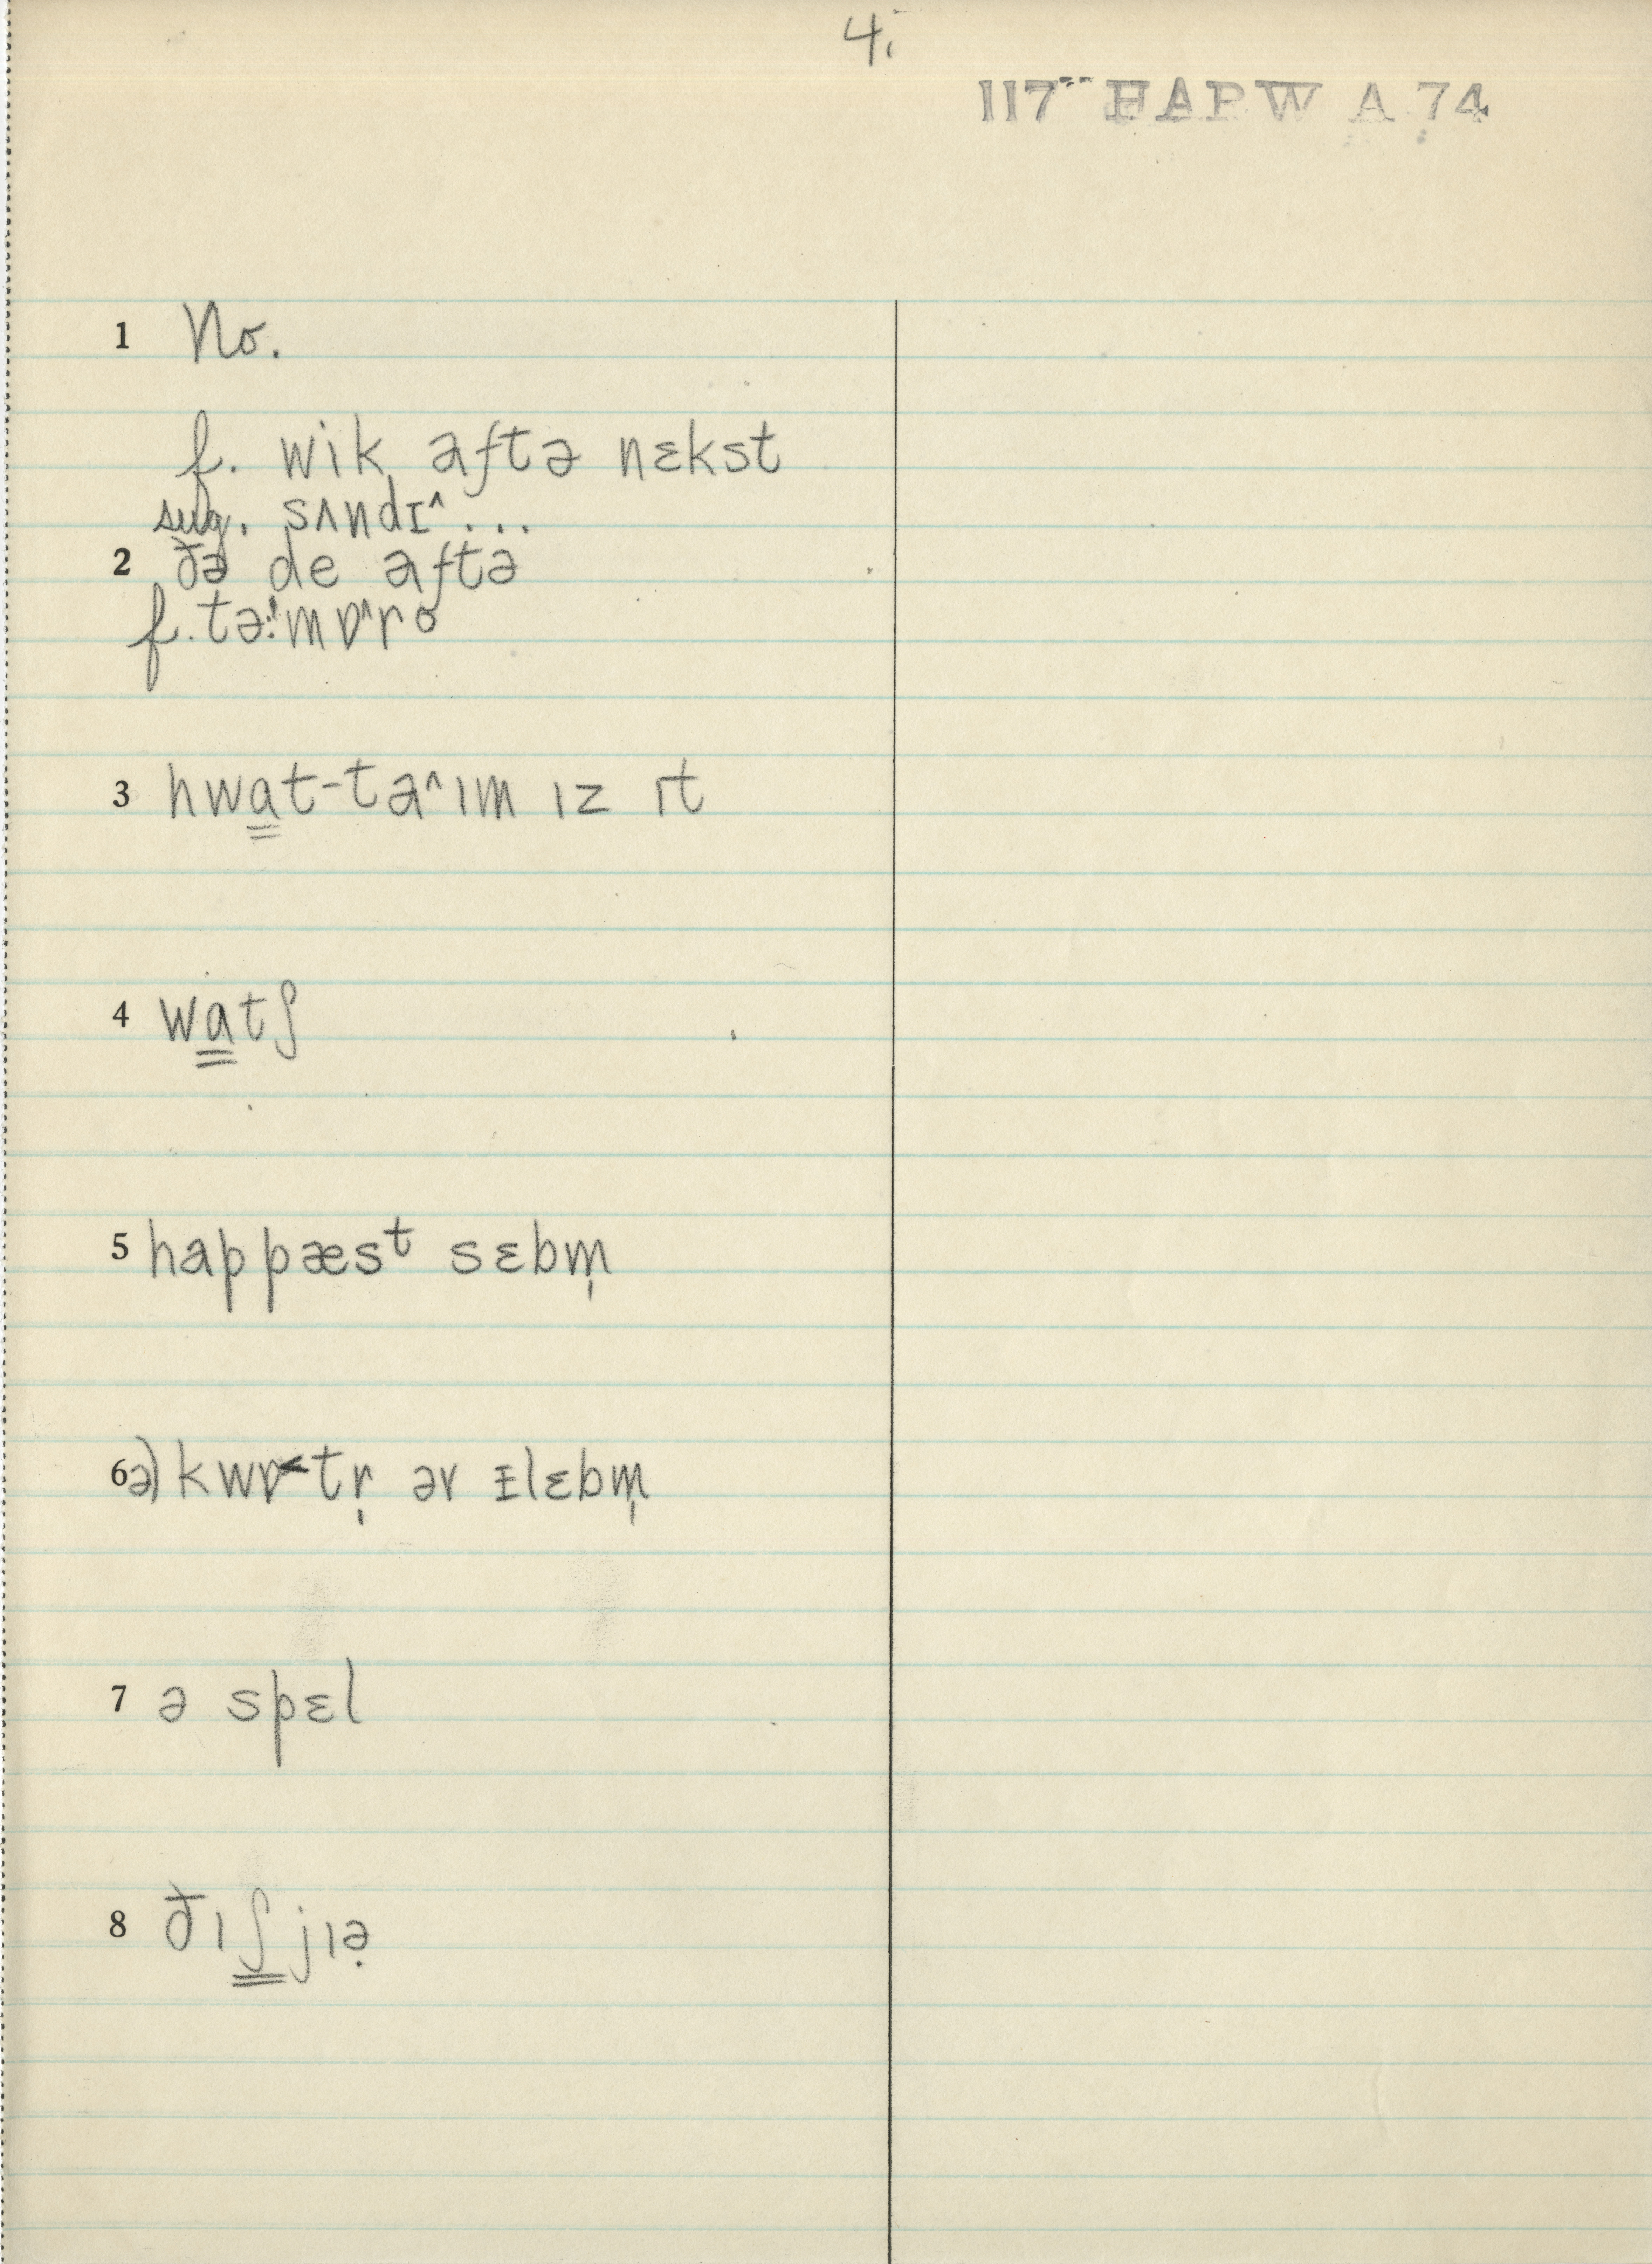 4.
117 HAPW A 74
1 No.
f. wik aftə nɛkst
sug. sʌndɪ^...
2 ðə de aftə
f. tə'mɒ^ro
3 hwat-ta^ım ız ıt
4 watʃ
5 happæsᵗ sɛbm̩
6 a) kwɒ<tr̩ əv ɪlɛbm̩
7 ə spɛl
8 ðıʃ jıə̣